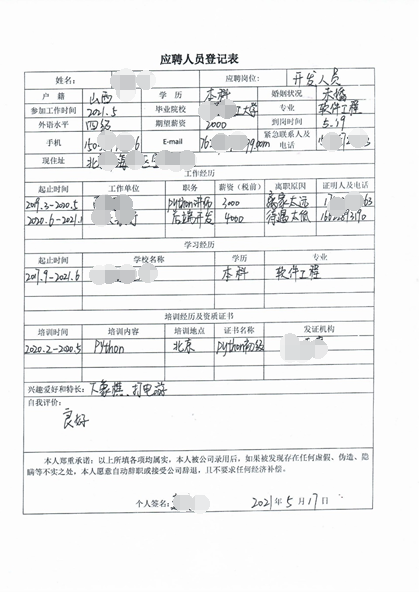 应聘人员登记表
姓名： 应聘岗位： 开发人员
户籍 山西 学历 本科 婚姻状况 未婚
参加工作时间 2021.5 毕业院校 工大学 专业 软件工程
外语水平 四级 期望薪资 2000 到岗时间 5.19
手机 150 6 E-mail 76. 99.com 紧急联系人及电话
现住址 北
工作经历
起止时间 工作单位 职务 薪资（税前） 离职原因 证明人及电话
2019.3-2020.5 python 3000 离家太远 17 63
2020.6-2021.1 后端开发 4000 待遇太低
学习经历
起止时间 学校名称 学历 专业
2017.9-2021.6 本科 软件工程
培训经历及资质证书
培训时间 培训内容 培训地点 证书名称 发证机构
2020.2-2020.5 Python 北京 python初级
兴趣爱好和特长： 下象棋、打电游
自我评价：
良好
本人郑重承诺：以上所填各项均属实，本人被公司录用后，如果被发现存在任何虚假、伪造、隐
瞒等不实之处，本人愿意自动辞职或接受公司辞退，且不要求任何经济补偿。
个人签名： 2021年5月17日